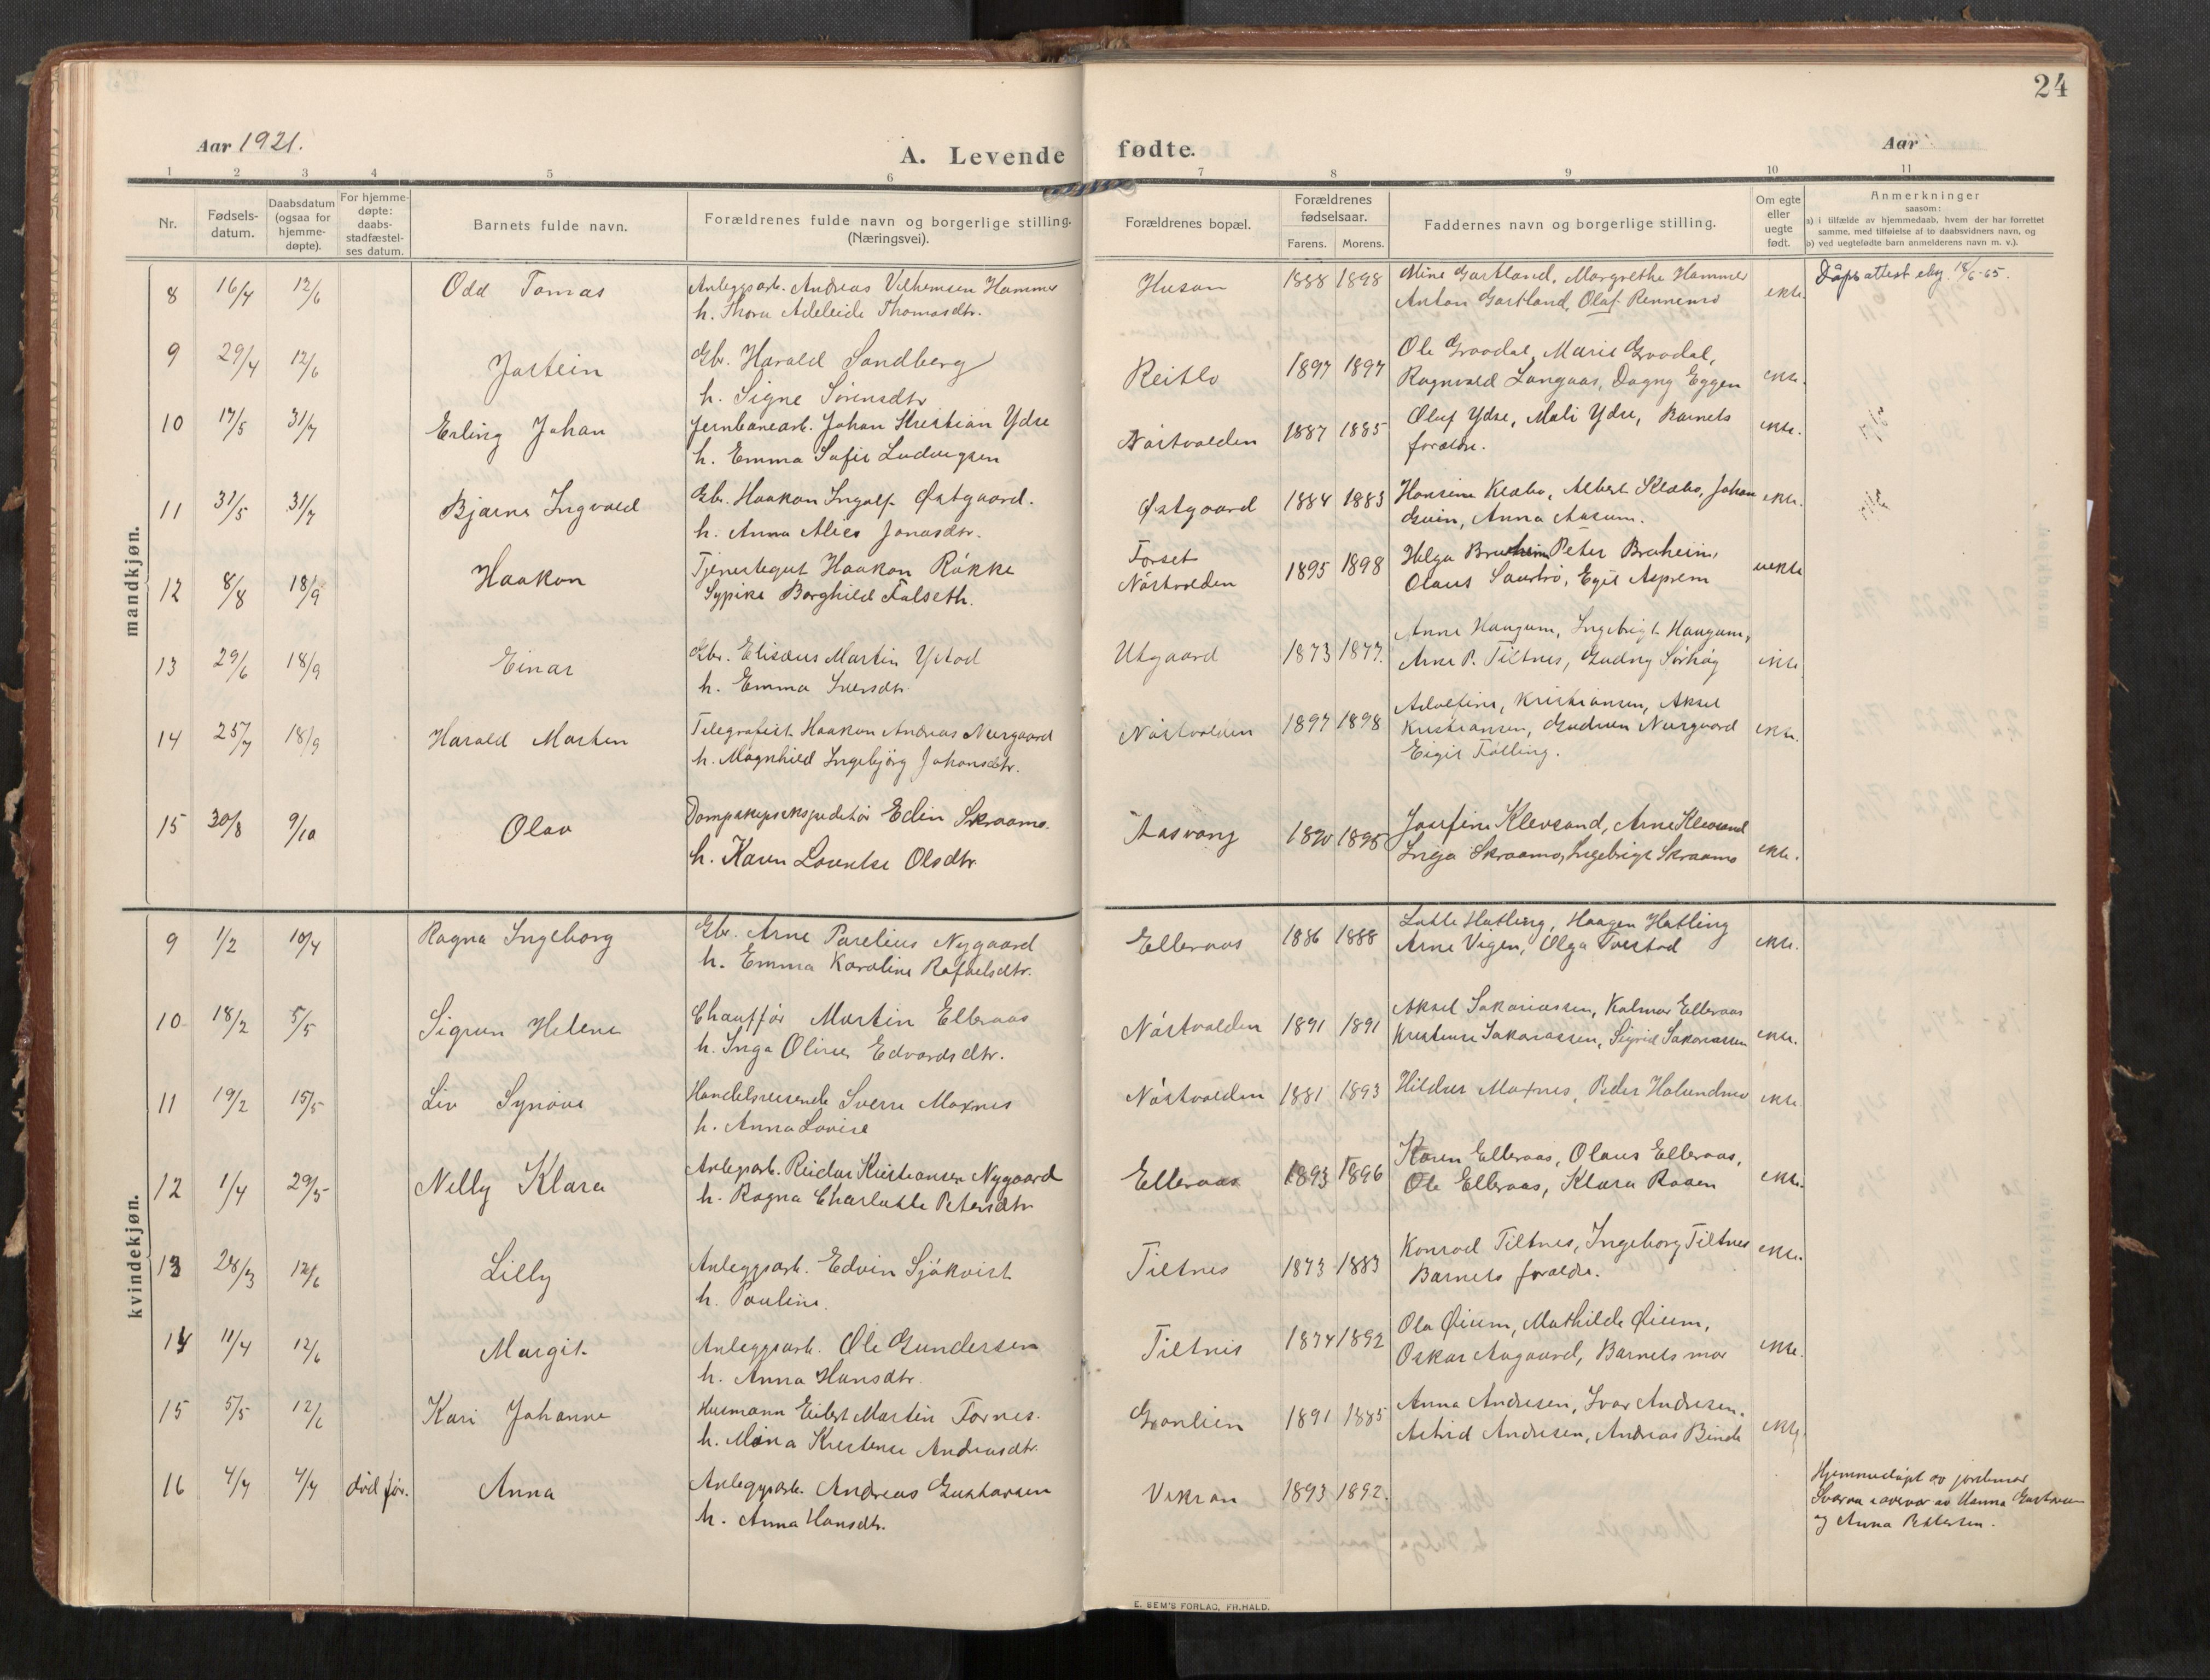 24
Aar 1921.
A. Levende fødte.
Aar
1 2 3 4 5 6 7 8 9 10 11
Nr.
Fødsels-
datum.
Daabsdatum
(ogsaa for
hjemme-
døpte).
For hjemme-
døpte:
daabs-
stadfæstel-
ses datum.
Barnets fulde navn.
Forældrenes fulde navn og borgerlige stilling.
(Næringsvei).
Forældrenes bopæl.
Forældrenes
fødselsaar.
Farens. Morens.
Faddernes navn og borgerlige stilling.
Om egte
eller
uegte
født.
Anmerkninger
saasom:
a) i tilfælde av hjemmedaab, hvem der har forrettet
samme, med tilføielse af to daabsvidners navn, og
b) ved uegtefødte barn anmelderens navn m. v.).
mandkjøn.
8 16/4 12/6 Odd Tomas Anleggsarb. Andreas Vilhemsen Hammer Huson 1888 1898 Mine Gartland, Margrethe Hammer ekte. Dåpsattest 18/6-65.
h. Thora Adeleide Thomasdtr. Anton Gartland, Olaf Rennemo
9 29/4 12/6 Jostein Gbr. Harald Sandberg Reitlo 1897 1897 Ole Groodal, Marie Groodal, ekte.
h. Signe Sørensdtr Ragnvald Langaas, Dagny Eggen
10 17/5 31/7 Erling Johan Jernbanearb. Johan Kristian Ydse Nåstvolden 1887 1885 Oluf Ydse, Mali Ydse, Barnets ekte.
h. Emma Sofie Ludvigsen foræld.
11 31/5 31/7 Bjarne Ingvald Gbr. Haakon Ingolf Østgaard. Østgaard 1884 1883 Hansine Klæbo, Albert Klæbo, Johan ekte.
h. Anna Alice Jonasdtr. Anna Aasum.
12 8/8 18/9 Haakon Tjenestegut Haakon Røkke Forset 1895 1898 Helga Bruheim Peter Bruheim, uekte
Sypike Borghild Falseth. Nåstvolden Olaus, Egil Asprem
13 29/6 18/9 Einar Gbr. Elisæus Martin Ystad Utgaard 1873 1877. Anne Haugum, Ingebrigt Haugum, ekte
h. Emma Iversdtr Arne P. Tiltnes, Gudny Sørhøg
14 25/7 18/9 Harald Morten Telegrafist Haakon Andreas Neergaard Nåstvolden 1897 1898 Adolfine, Kristiansen, Aksel ekte.
h. Magnhild Ingebjørg Johansdtr. Kristiansen, Gudrun Neergaard
Eigil Følling.
15 30/8 9/10 Olav Dampskipsekspeditør Edin Skraamo. Aasvang 1890 1895 Josefine Klevsand, Arne Klevsand ekte.
h. Karen Lorentse Olsdtr. Inga Skraamo, Ingebrigt Skraamo
kvindekjøn.
9 1/2 10/4 Ragna Ingeborg Gbr. Arne Parelius Nygaard Elleraas 1886 1888 Lotte Hatling, Haagen Hatling ekte.
h. Emma Karoline Rafaelsdtr. Arne Vegen, Olga Tvestad
10 18/2 5/5 Sigrun Helene Chauffør Martin Elleraas Nåstvolden 1891 1891 Aksel Sakariassen, Kalmar Elleraas ekte.
h. Inga Oline Edvardsdtr. Kristense Sakariassen, Sigrid Sakariassen
11 19/2 15/5 Liv Synøve Handelsreisende Sverre Moxnes Nåstvolden 1881 1893 Hildur Moxnes, Peder ekte.
h. Anna Lovise
12 1/4 29/5 Nelly Klara Anlegsarb. Reidar Kristiansen Nygaard Elleraas 1893 1896 Karen Elleraas, Olaus Elleraas, ekte.
h. Ragna Charlotte Petersdtr Ole Elleraas, Klara Raaen
13 28/3 12/6 Lilly Anleggsarb. Edvin Sjøkvist Tiltnes 1873 1883 Konrad Tiltnes, Ingeborg Tiltnes ekte.
h. Pauline. Barnets forældre.
14 11/4 12/6 Margit Anleggsarb. Ole Gundersen Tiltnis 1874 1892 Ola Øium, Mathilde Øium, ekte.
h. Anna Hansdtr. Oskar Aagaard, Barnets mor
15 5/5 12/6 Kari Johanne Husmann Eilert Martin Fornes. Granlien 1891 1885 Anna Andresen, Ivar Andresen. ekte.
h. Mina Kristense Andreasdtr. Astrid Andresen, Andreas Binde
16 4/7 4/7 død før. Anna Anleggsarb. Andreas Gustavsen Vekran 1893 1892. Hjemmedøpt av jordmor
h. Anna Hansdtr. av Hanna
og Anna Pettersen.
E. SEM'S FORLAG, FR.HALD.